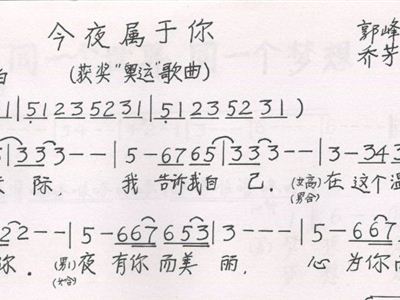 今夜属于你 郭峰
(获奖"奥运"歌曲) 乔芳
1|51235231|51235231)
5|333--|5-6765|333--|3-343
际, 我 告诉我自己. (女高)(男合) 在这个温
22--|5-667653|3---|5-667
你. (男)(女合) 夜 有你而美丽, 心 为你而